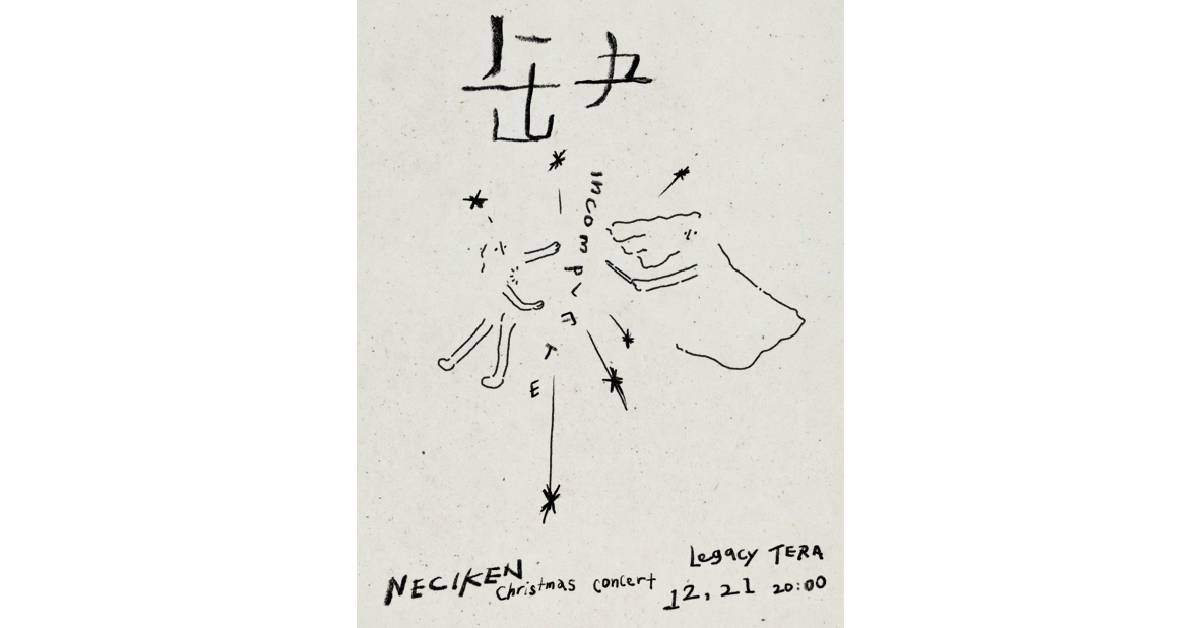 IncompLETE
Legacy TERA
NECIKEN Christmas concert
12,21 20:00